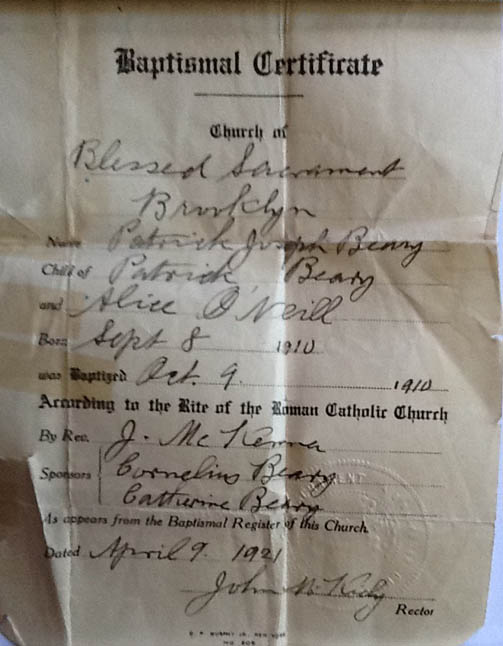 Baptismal Certificate
Church of
Blessed Sacrament
Brooklyn
Name Patrick Joseph Beary
Child of Patrick Beary
and Alice O'Neill
Born Sept 8 1910
was Baptized Oct. 9 1910
According to the Rite of the Roman Catholic Church
By Rev. J. McKenna
Sponsors Cornelius Beary
Catherine Beary
As appears from the Baptismal Register of this Church.
Dated April 9. 1921
John
Rector